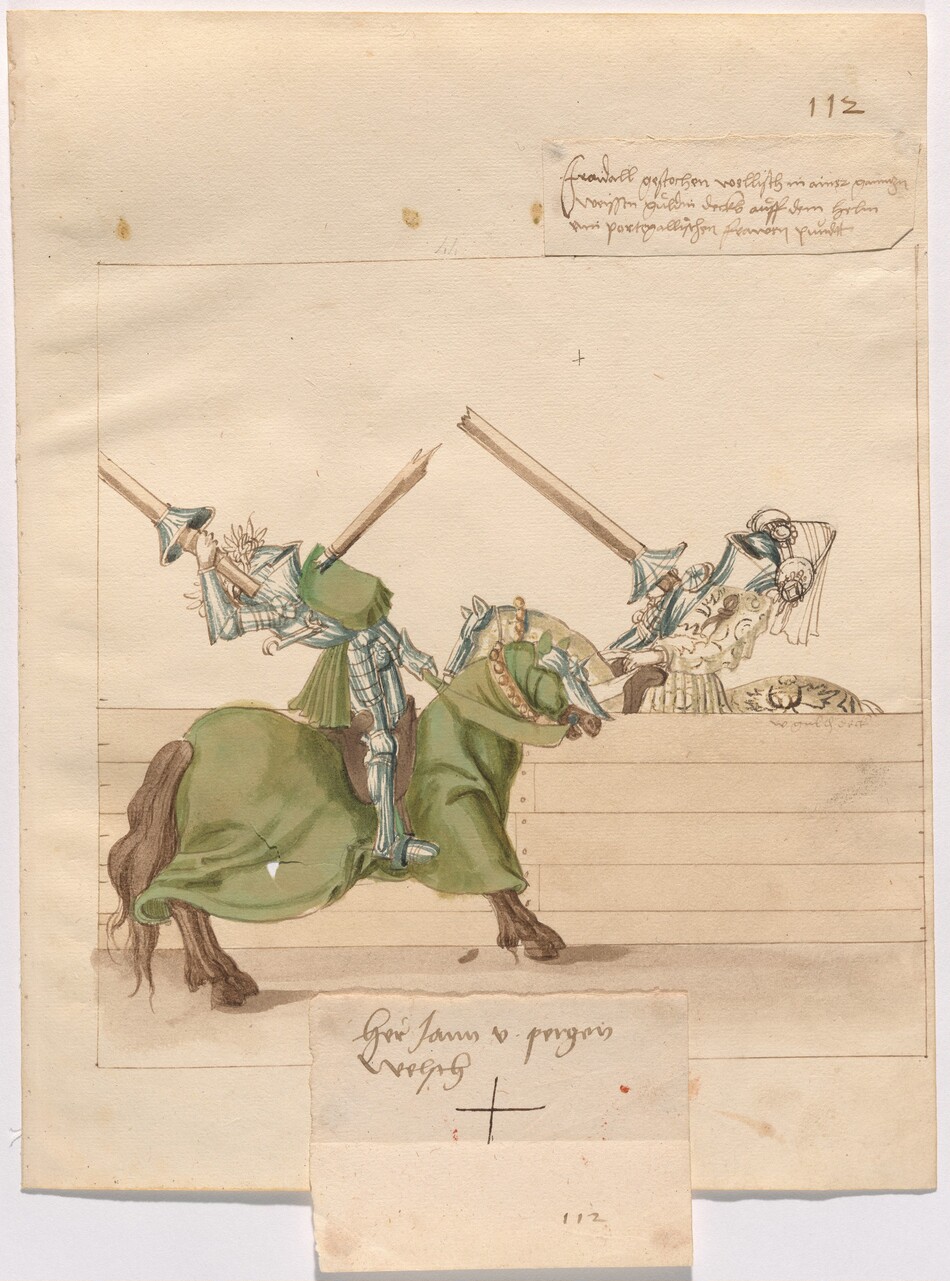 112
Fraidall gestochen wellisch in ainer
weissen guldin deckh auff dem helm
ein portegallischen frawen pundt
44
her jann v. pergen
welsch
112